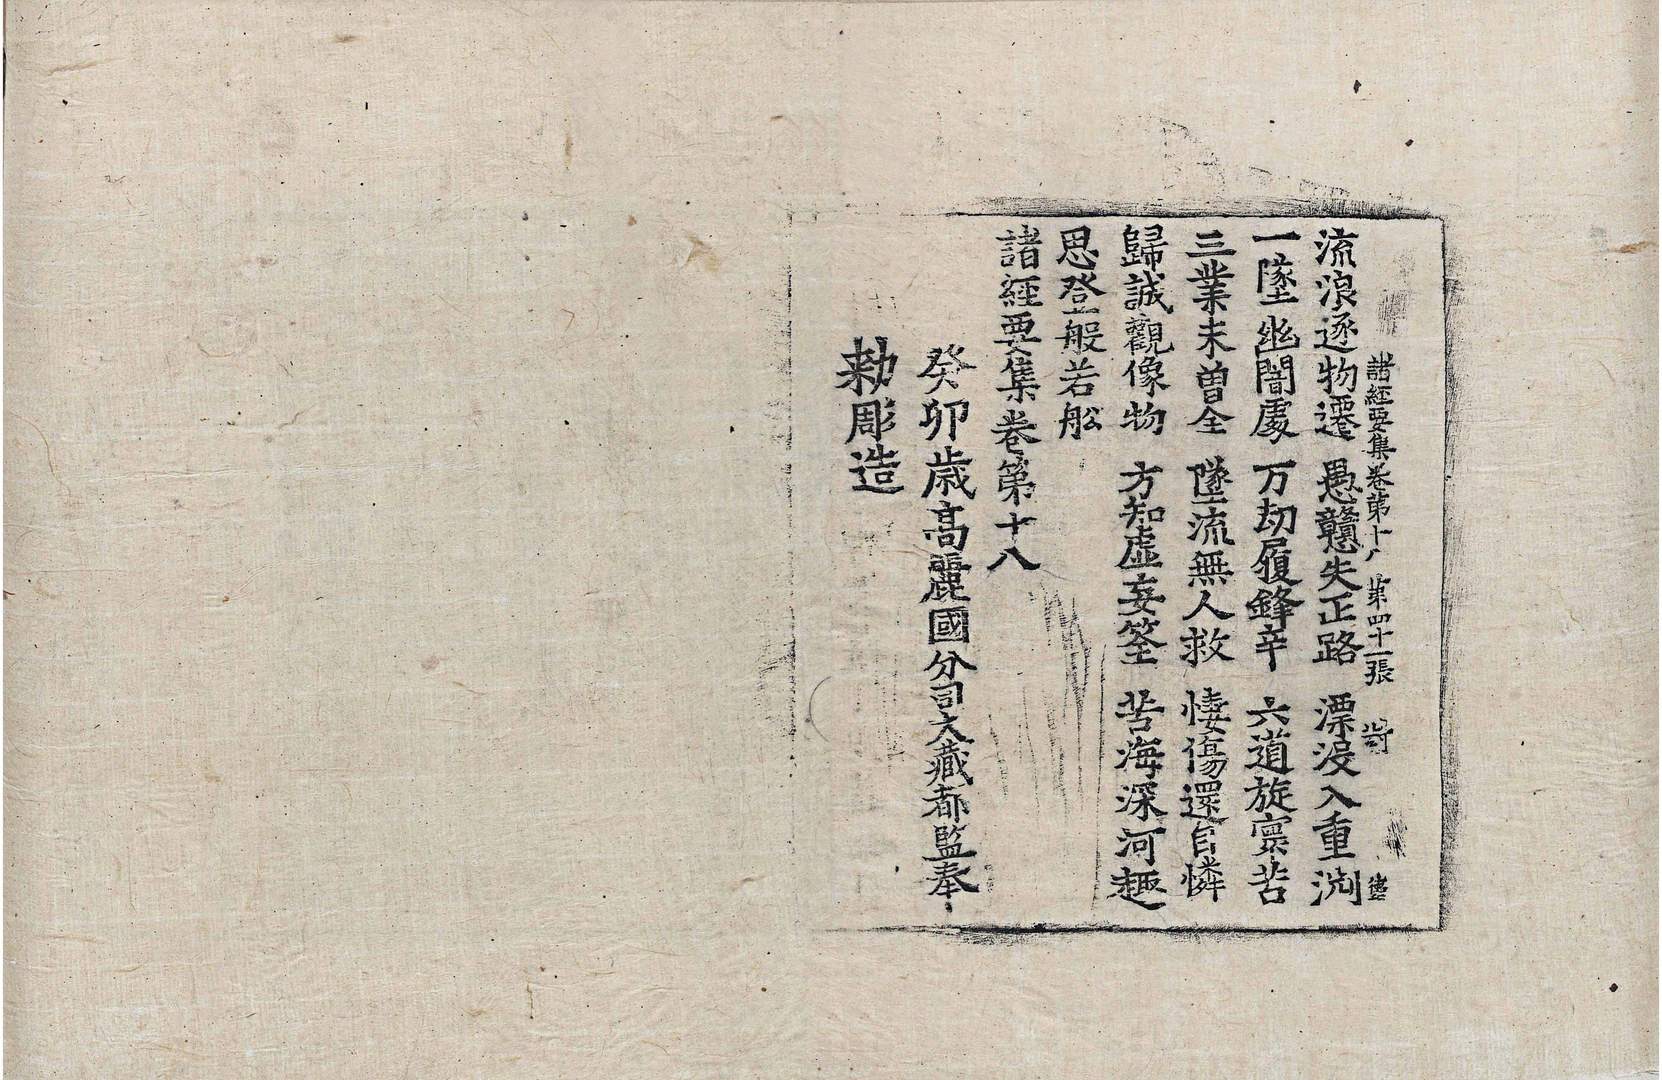 諸經要集卷第十八 第四十一張
流浪逐物遷 愚戇失正路 漂没入重渕
一墜幽闇處 万劫履鋒辛 六道旋寃苦
三業未曽全 墜流無人救 悽傷還自憐
歸誠觀像物 方知虛妄筌 苦海深河趣
思登般若舩
諸經要集卷第十八
癸卯歳高麗國分司大藏都監奉
勑彫造